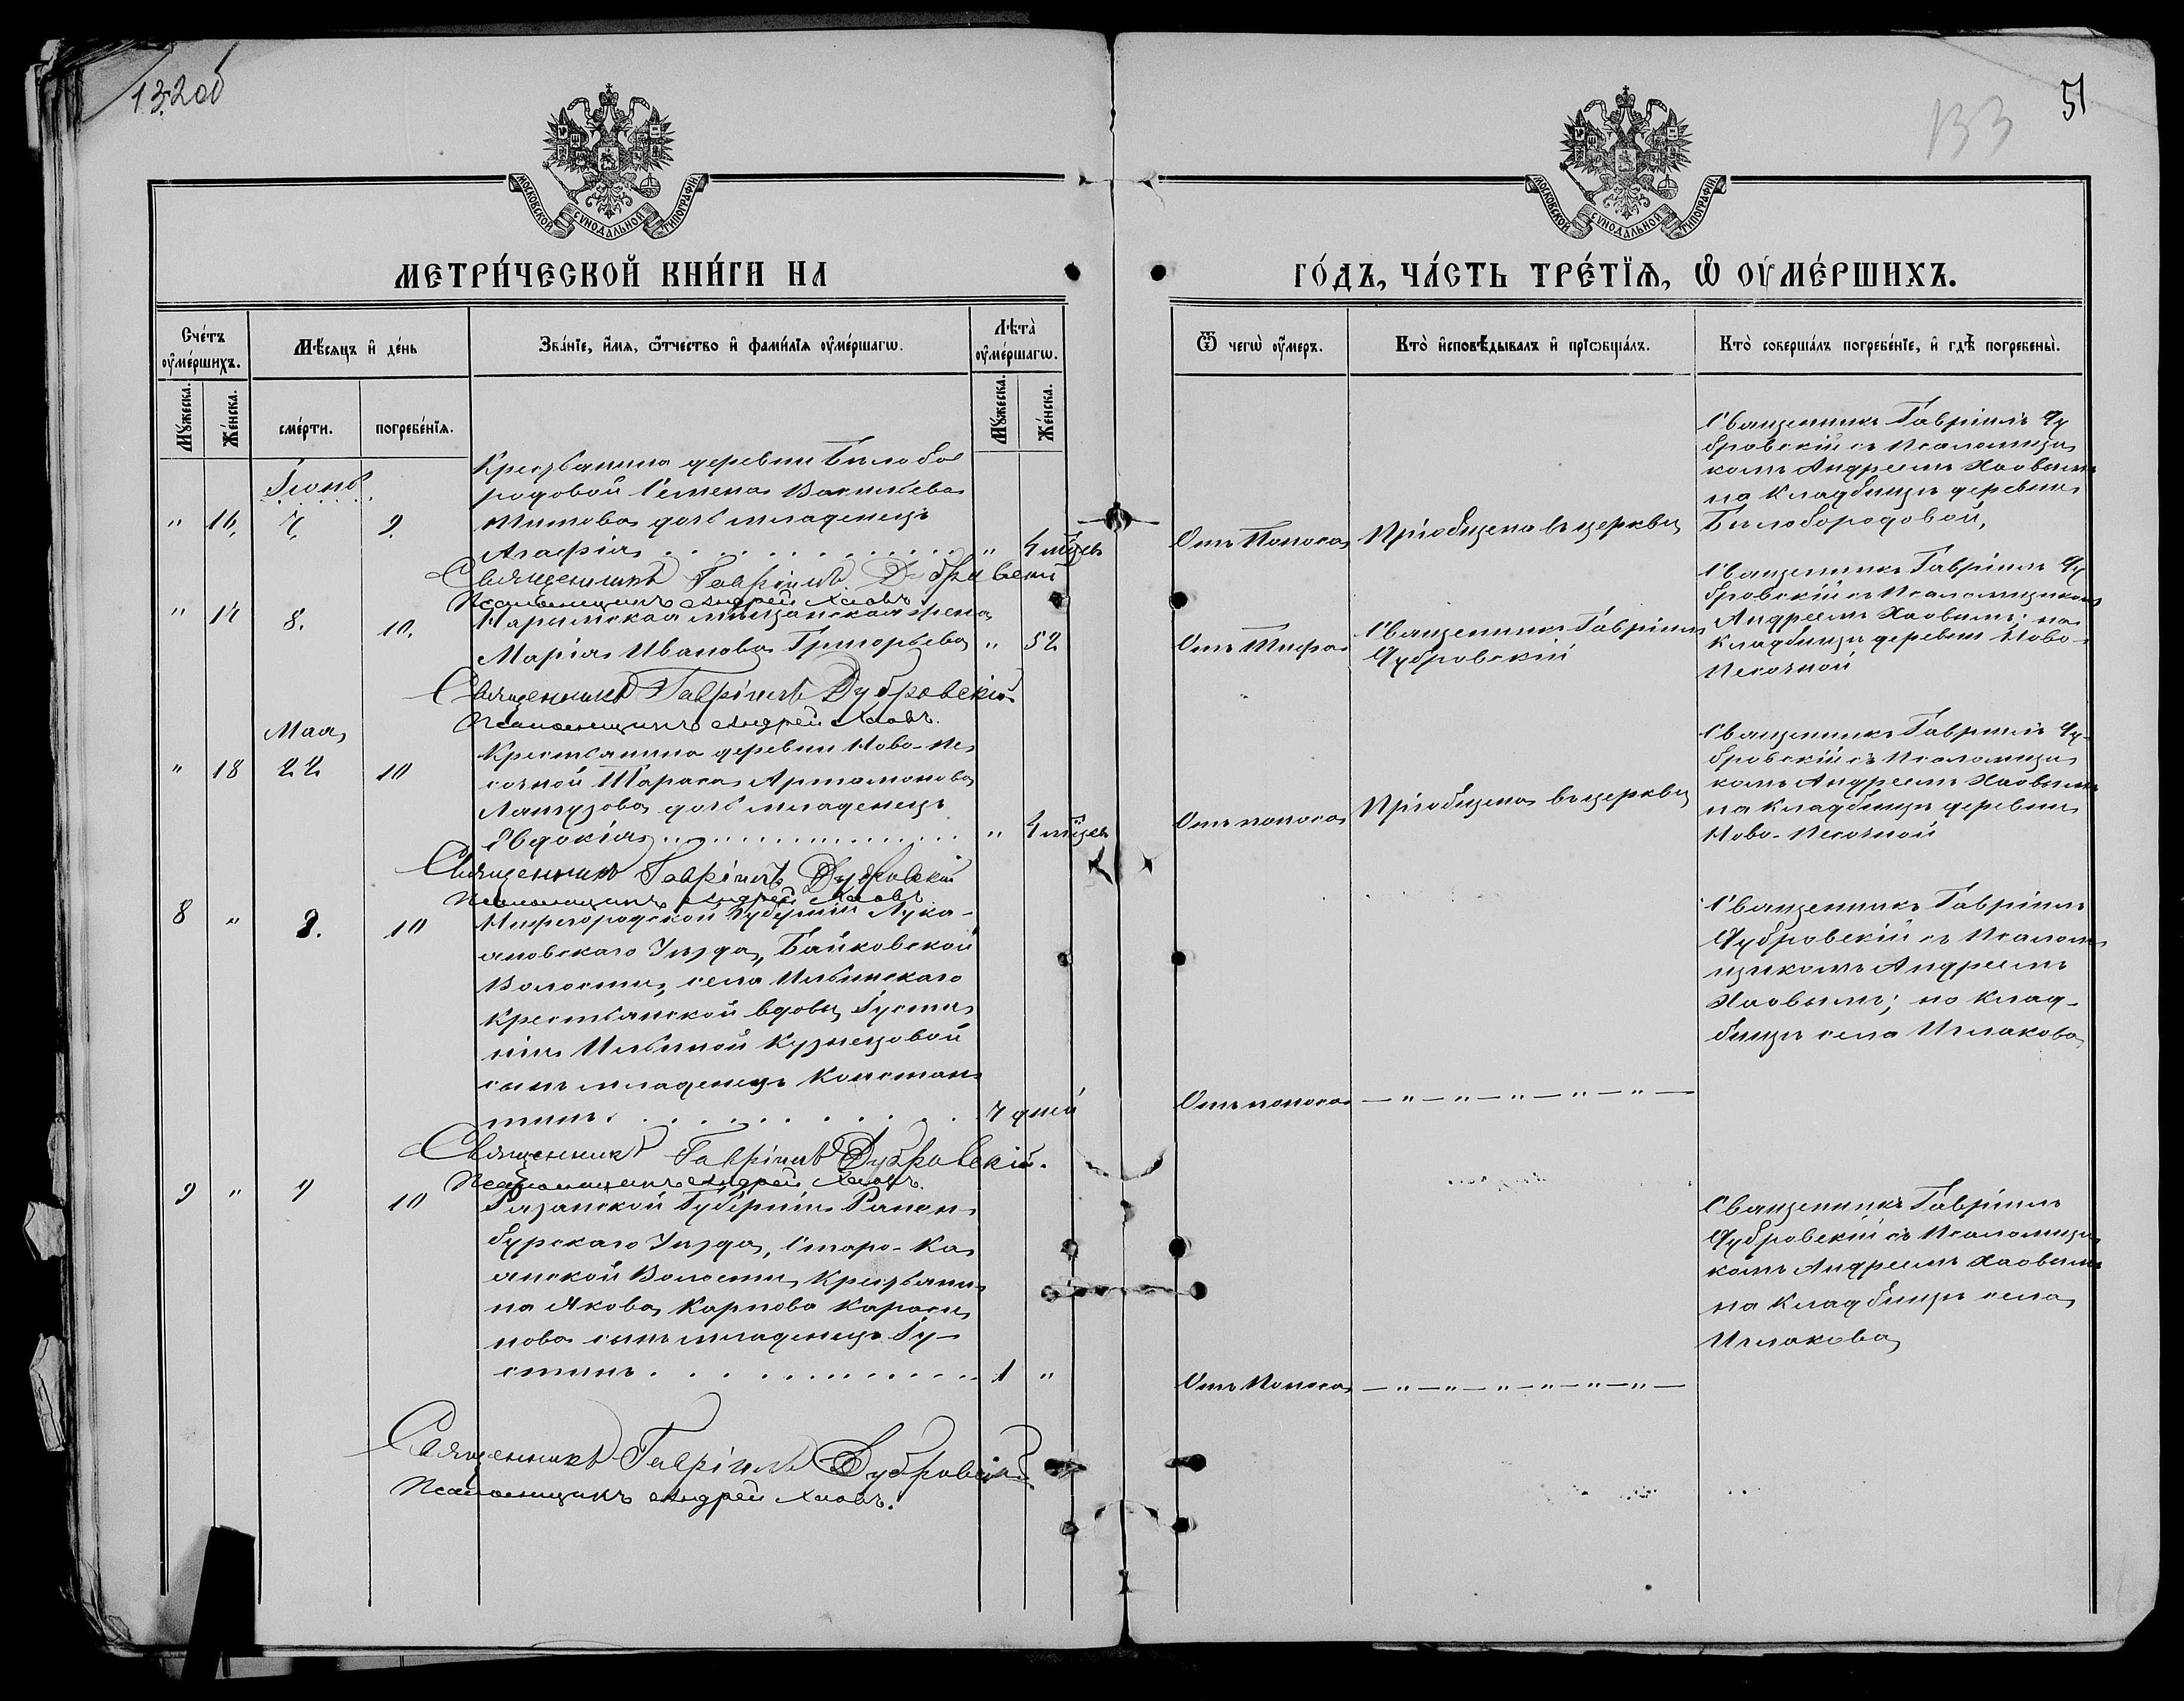 132об
51
133
МОСКОВСКОЙ СУНОДАЛЬНОЙ ТИПОГРАФІИ
МОСКОВСКОЙ СУНОДАЛЬНОЙ ТИПОГРАФІИ
МЕТРИ́ЧЕСКОЙ КНИ́ГИ НА
ГО́ДЪ, ЧА́СТЬ ТРЕ́ТЇѦ, Ѡ҆ ОУ҆МЕ́РШИХЪ.
Сче́тъ оу҆ме́ршихъ.
Мꙋ́жеска.
Же́нска.
Мѣ́сяцъ и҆ де́нь
сме́рти.
погребе́нїѧ.
Зва́нїе, и҆́мѧ, ѻ҆́тчество и҆ фами́лїѧ оу҆ме́ршагѡ.
Лѣ́та оу҆ме́ршагѡ.
Мꙋ́жеска.
Же́нска.
Ѿ чегѡ̀ оу҆́меръ.
Кто̀ и҆сповѣ́дывалъ и҆ прїѡбща́лъ.
Кто̀ соверша́лъ погребе́нїе, и҆ гдѣ̀ погребены̀.
Іюнь
" 16. 7. 9.
Крестьянина деревни Бѣлобо
родовой Семена Васильева
Титова дочь младенецъ
Агафія " 4 мѣсяц.
Отъ Поноса
Пріобщена въ церкви
Священникъ Гавріилъ Ду
бровскій съ Псаломщи
комъ Андреемъ Хаовымъ
на кладбищѣ деревни
Бѣлобородовой,
Священникъ Гавріилъ Дубровскій
Псаломщикъ Андрей Хаовъ.
" 17 8. 10.
Нарымская мѣщанская жена
Марія Иванова Григорьева " 52
Отъ Тифа
Священникъ Гавріилъ
Дубровскій
Священникъ Гавріилъ Ду
бровскій съ Псаломщикомъ
Андреемъ Хаовымъ; на
кладбищѣ деревни Ново-
Песочной
Священникъ Гавріилъ Дубровскій
Псаломщикъ Андрей Хаовъ.
Мая
" 18 22 10
Крестьянина деревни Ново-Пе
сочной Тараса Артамонова
дочь младенецъ
Евдокія " 4 мѣсяц
Отъ поноса
Пріобщена въ церкви
Священникъ Гавріилъ Ду-
бровскій съ Псаломщи
комъ Андреемъ Хаовымъ
на кладбищѣ деревни
Ново-Песочной
Священникъ Гавріилъ Дубровскій
Псаломщикъ Андрей Хаовъ
8 " 8. 10
Нижегородской Губерніи Луко-
яновскаго Уѣзда, Байковской
Волости, села Ильинскаго
крестьянской вдовы Іусти
ніи Ильиной Кузнецовой
сынъ младенецъ Констан
тинъ. 7 дней
Отъ поноса — " — " — " — " — " —
Священникъ Гавріилъ
Дубровскій съ Псалом
щикомъ Андреемъ
Хаовымъ; на клад-
бищѣ села Иглакова
Священникъ Гавріилъ Дубровскій.
Псаломщикъ Андрей Хаовъ.
9 " 9 10
Рязанской Губерніи Ранен
бурскаго Уѣзда, Старо-Ка
анской Волости, Крестьяни
на Якова Карпова Караси
нова сынъ младенецъ Іу-
стинъ 1 "
Отъ Поноса — " — " — " — " — " — " —
Священникъ Гавріилъ
Дубровскій съ Псаломщи
комъ Андреемъ Хаовымъ
на кладбищѣ села
Иглакова
Священникъ Гавріилъ Дубровскій
Псаломщикъ Андрей Хаовъ.